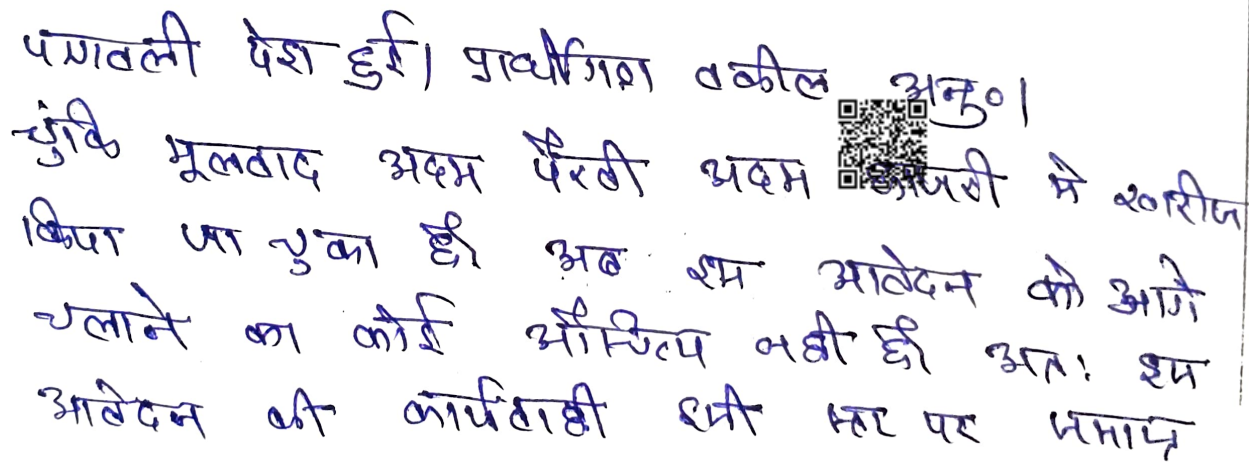 पत्रावली पेश हुई। प्रार्थीगण वकील अनु०।
चुंकि मूलवाद अदम पैरवी अदम हाजरी मे खारीज
किया जा चुका है। अब इस आवेदन को आगे
चलाने का कोई औचित्य नही है। अतः इस
आवेदन की कार्यवाही इसी स्तर पर समाप्त